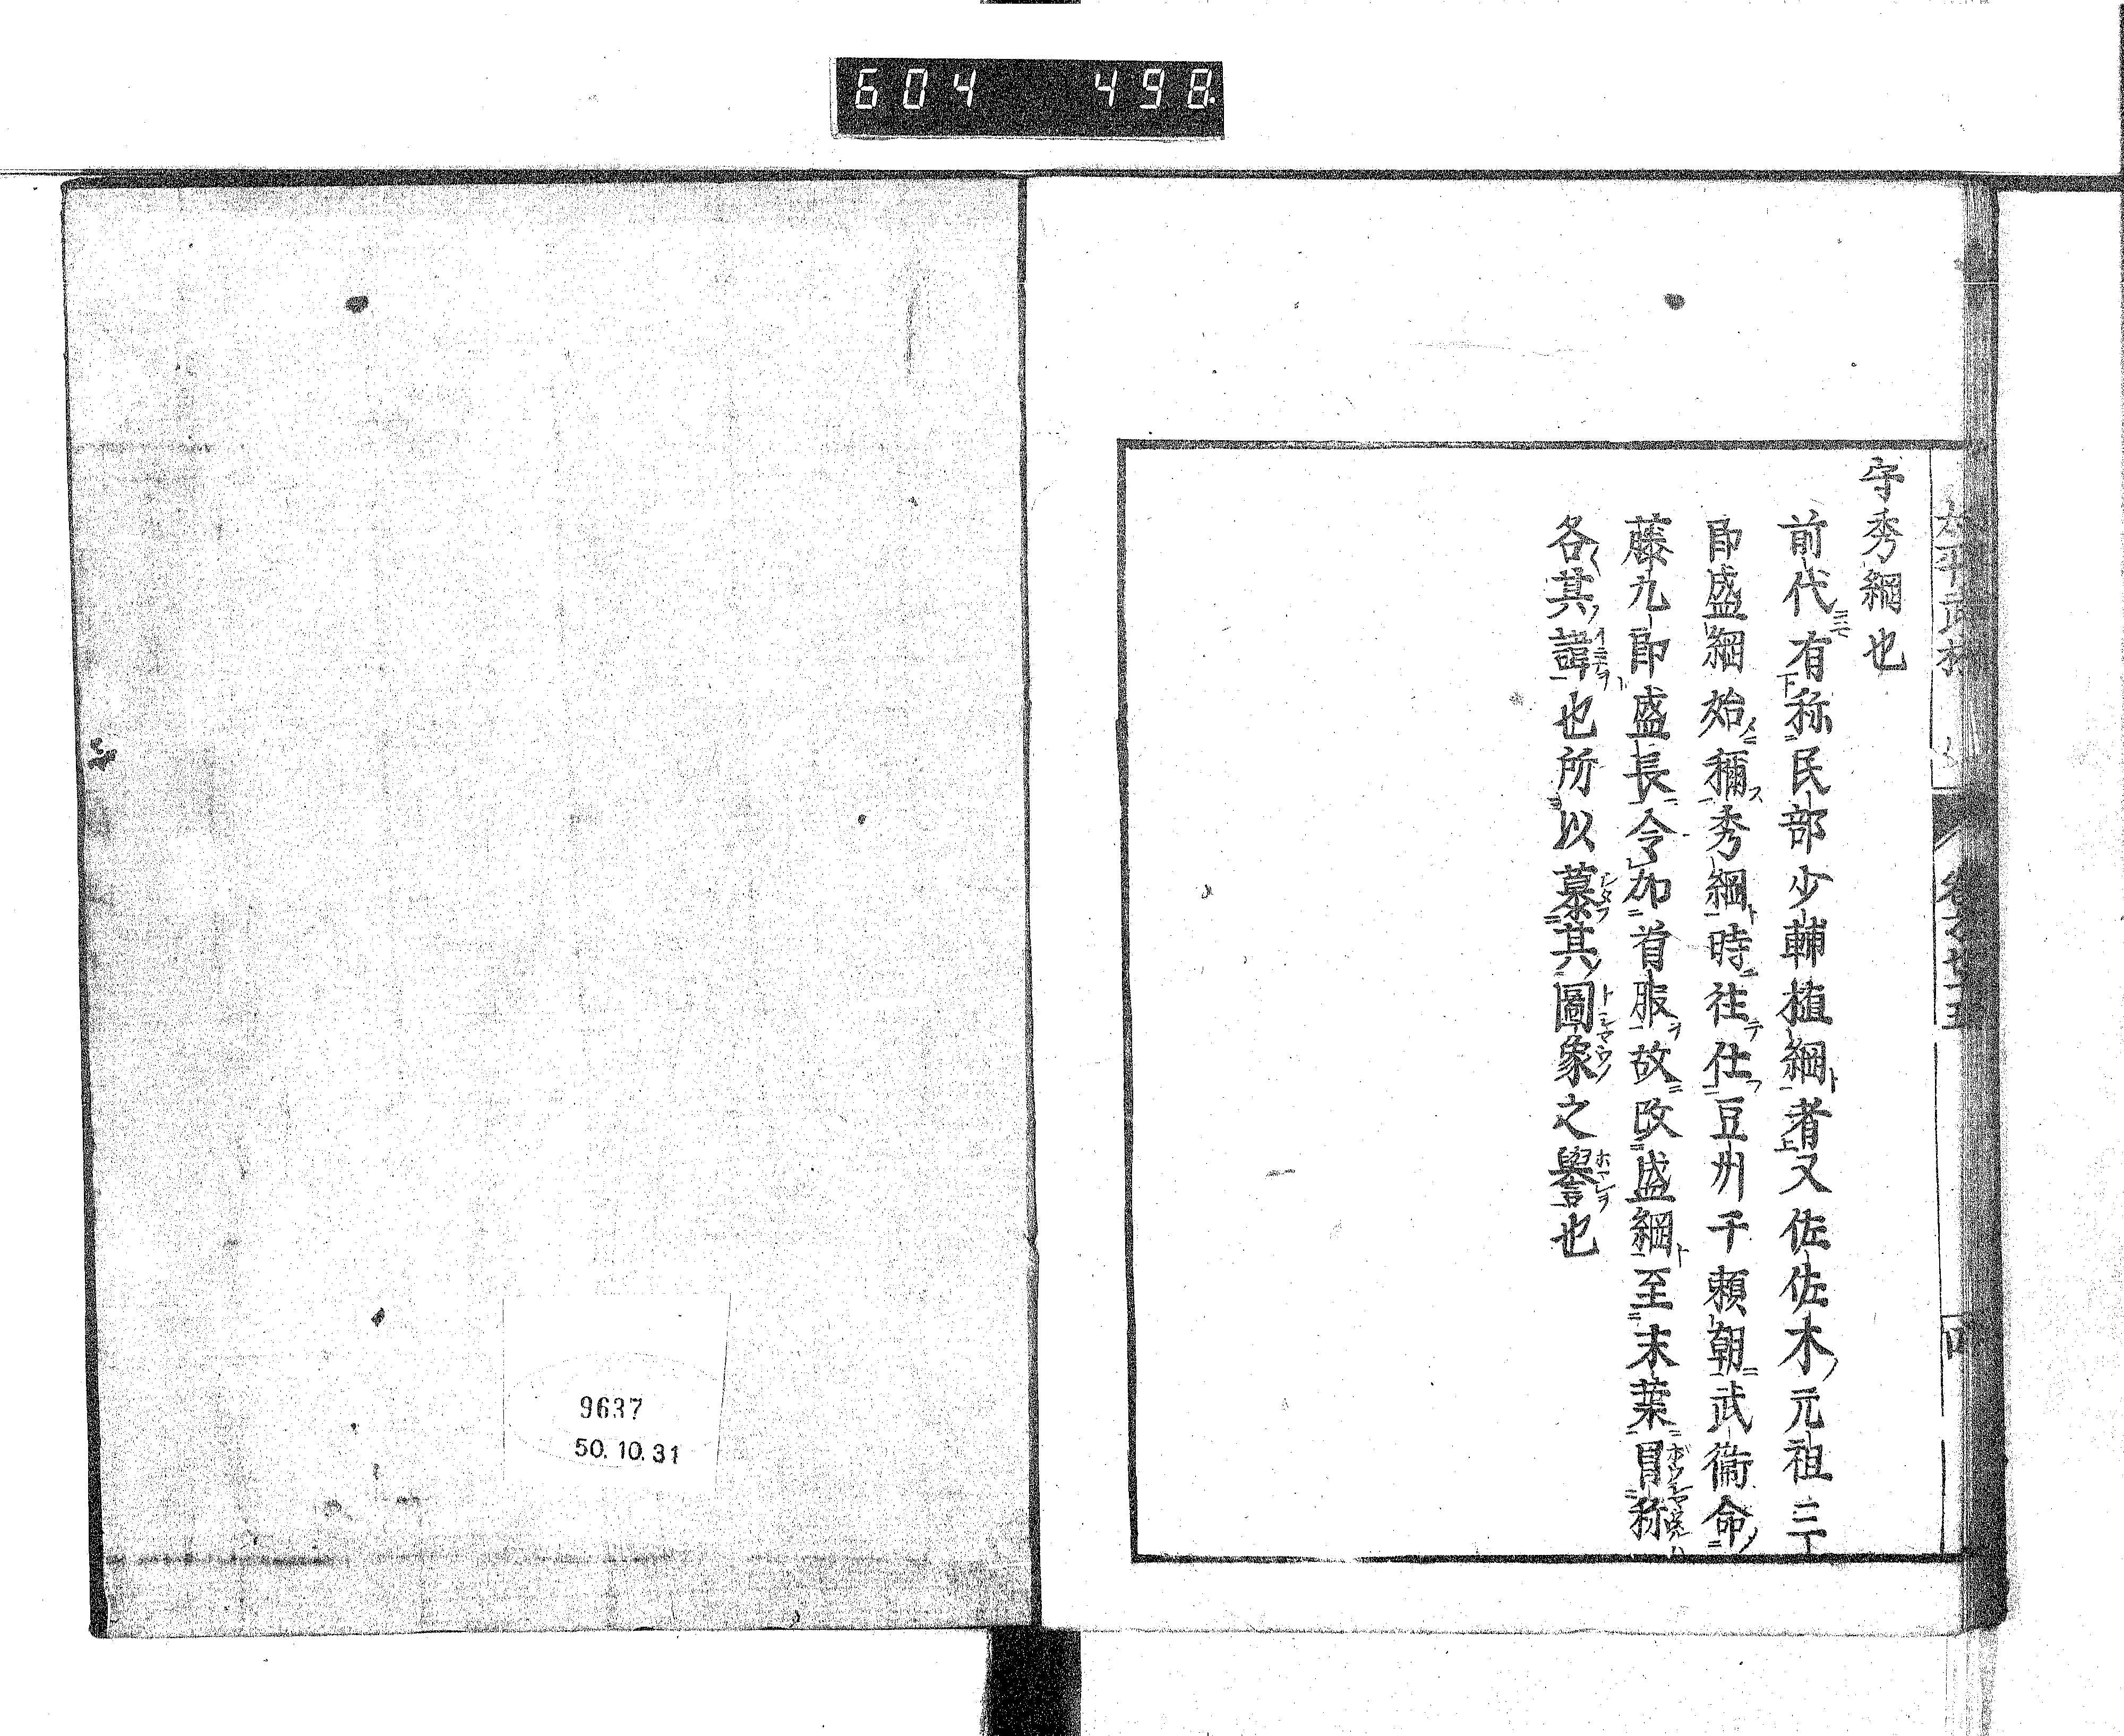 604 498.
守秀綱也
前代有称民部少輔植綱者又佐佐木元祖三
郎盛綱始稱秀綱時往仕豆州千頼朝武衞命
藤九郎盛長令加首服故改盛綱至末葉冒称
各其諱也所以慕其圖象之譽也
9637
50.10.31